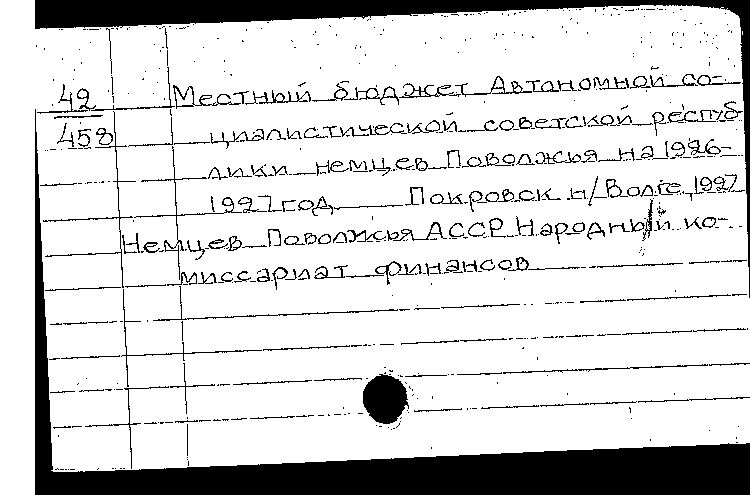 42 Местный бюджет Автономной со-
458 циалистической советской респуб-
лики немцев Поволжья на 1926-
1927 год Покровск н/Волге, 1927
Немцев Поволжья АССР Народный ко-
миссариат финансов